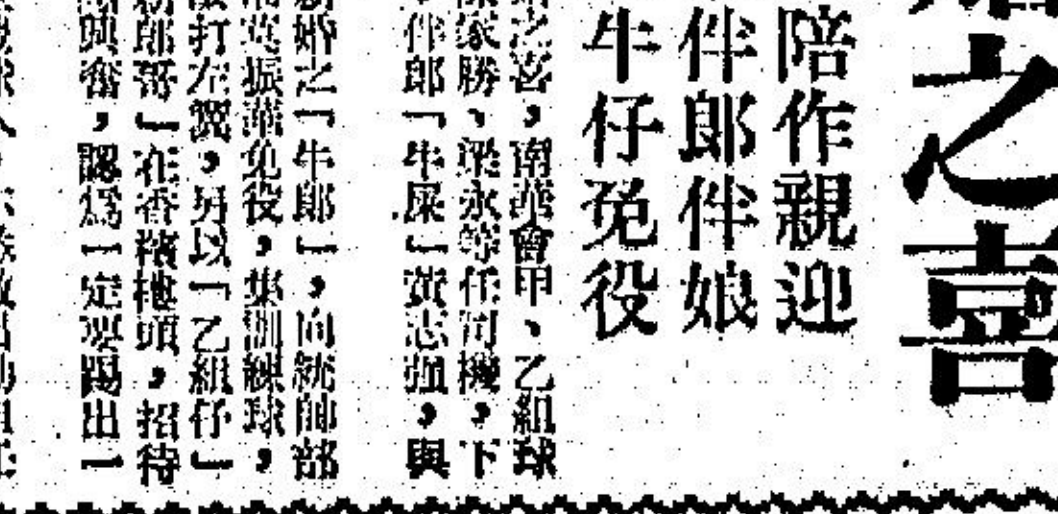 之喜
陪作親迎
伴郎伴娘
牛仔免役
之喜，南華會甲、乙組球
家勝、梁永等任司機，下
伴郎「牛屎」黃志強，與
婚之「牛郎」，向統帥部
英振華免役，集訓練球，
打左翼，另以「乙組仔」
郎哥」在香檳地頭，招待
興奮，認爲一定要踢出一